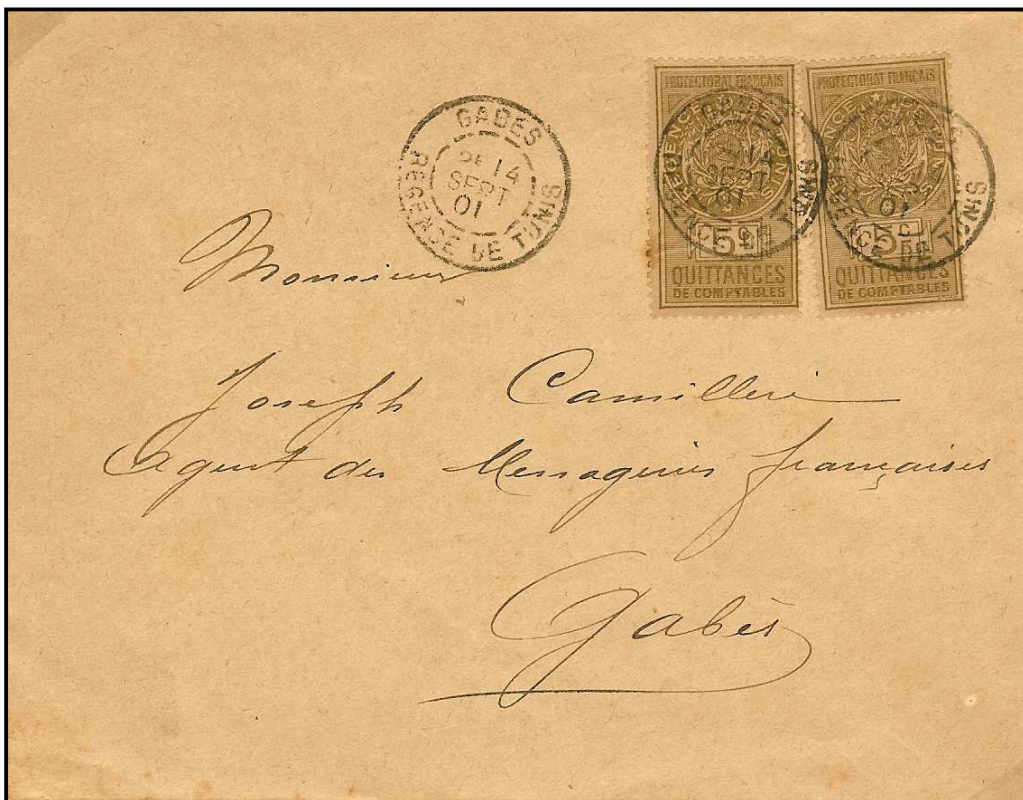 GABES
14
SEPT
01
RÉGENCE DE TUNIS
PROTECTORAT FRANÇAIS
RÉGENCE DE TUNIS
5c
QUITTANCES
DE COMPTABLES
PROTECTORAT FRANÇAIS
RÉGENCE DE TUNIS
5c
QUITTANCES
DE COMPTABLES
GABES
14
SEPT
01
RÉGENCE DE TUNIS
01
RÉGENCE DE TUNIS
Monsieur
Joseph Camilleri
Agent des Messageries françaises
Gabès